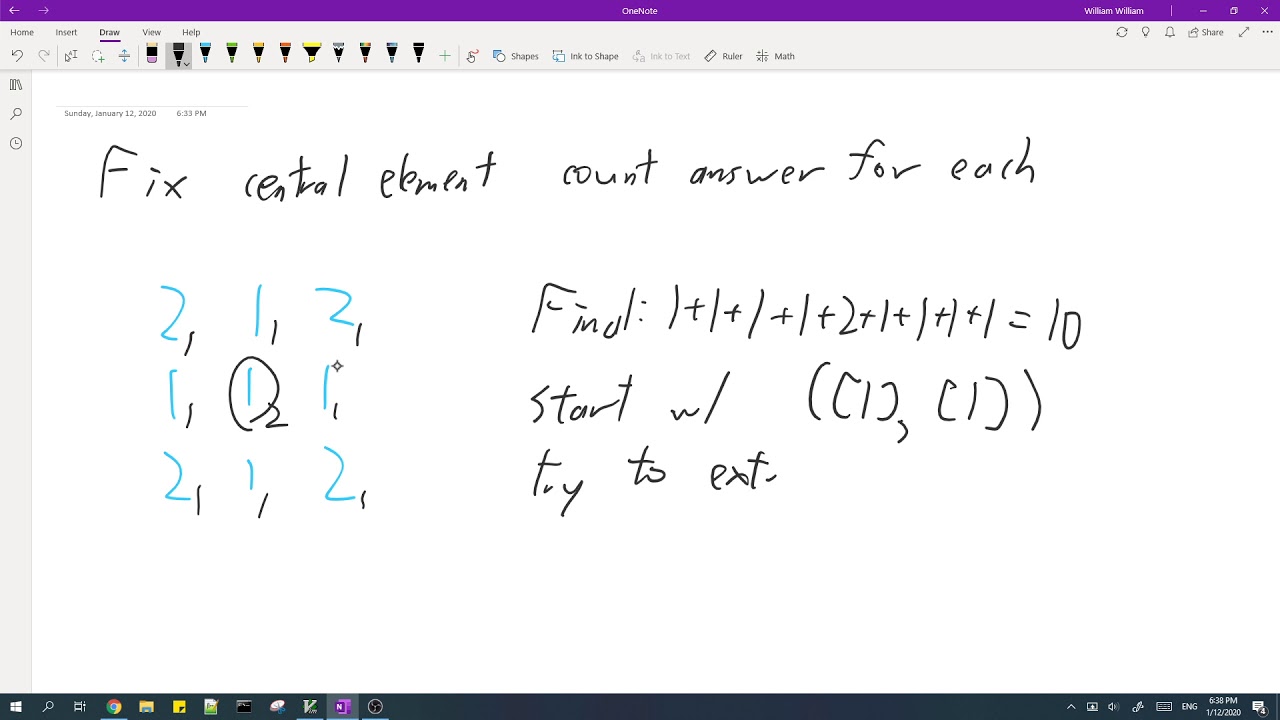 OneNote
William William
Home Insert Draw View Help
Share
Shapes Ink to Shape Ink to Text Ruler Math
Sunday, January 12, 2020 6:33 PM
Fix central element count answer for each
2, 1, 2,
1, 1 2 1,
2, 1, 2,
Find: 1+1+1+1+2+1+1+1+1 = 10
start w/ ([1], [1])
try to ext
6:38 PM
ENG
1/12/2020